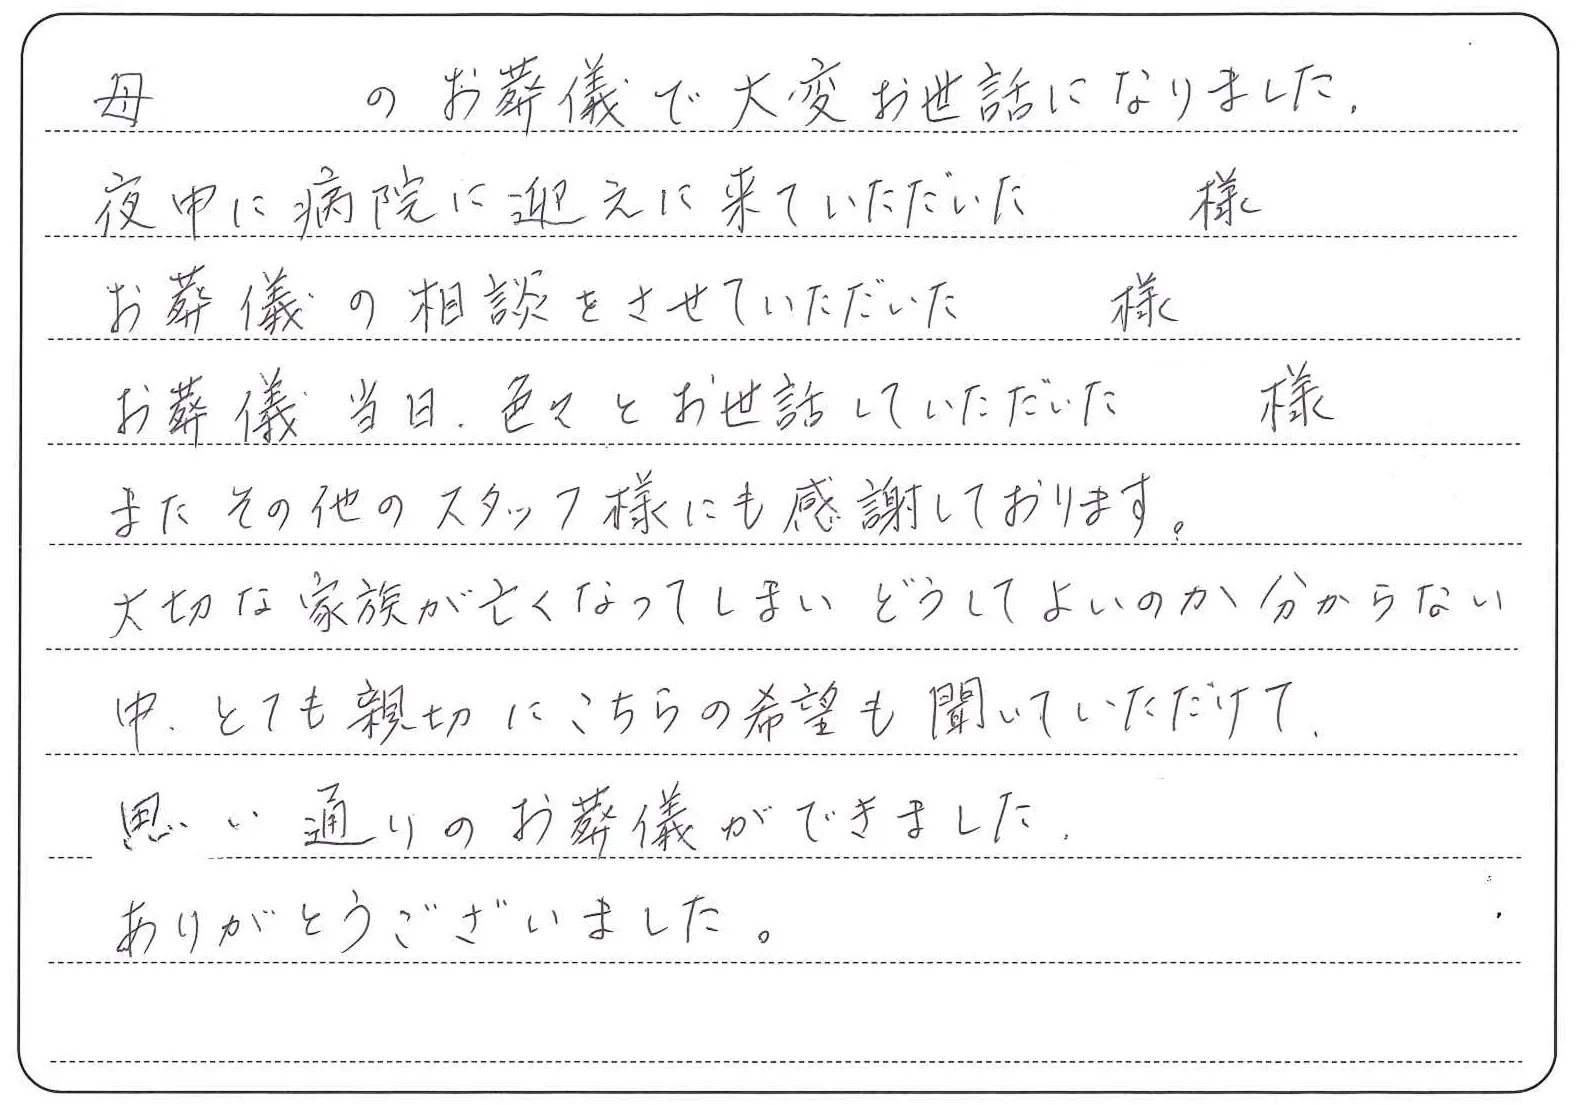 母 のお葬儀で大変お世話になりました.
夜中に病院に迎えに来ていただいた 様
お葬儀の相談をさせていただいた 様
お葬儀当日、色々とお世話していただいた 様
またその他のスタッフ様にも感謝しております。
大切な家族が亡くなってしまいどうしてよいのか分からない
中、とても親切にこちらの希望も聞いていただけて、
思い通りのお葬儀ができました.
ありがとうございました。